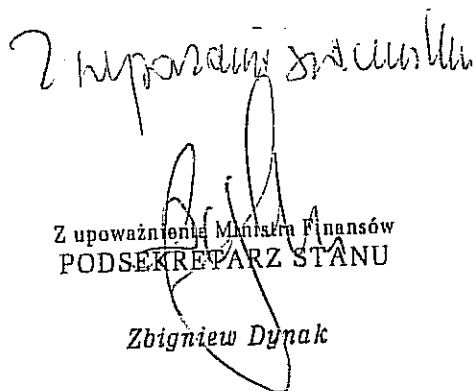 Z wyrazami szacunku
Z upoważnienia Ministra Finansów
PODSEKRETARZ STANU
Zbigniew Dynak